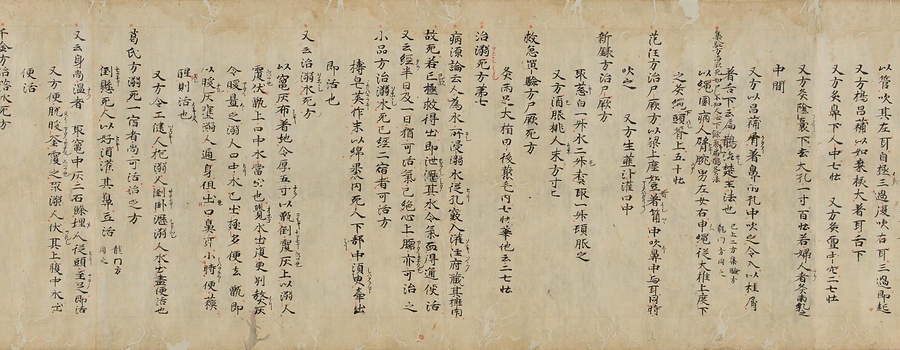 以管吹其左耳自極三過復吹右耳三過即起
又方搗昌蒲以如棗核大著耳舌下
又方灸鼻下人中七壯 又方灸膻中穴二七壯
又方灸陰囊下去大孔一寸百壯若婦人者灸兩乳之
中間
又方以昌蒲屑著鼻兩孔中吹之令入以桂屑
著舌下云扁鵲治楚王法也
以繩圍病人臂腕男左女右申繩從大椎上度下
之灸繩頭脊上五十壯
范汪方治尸厥方以
吹之 又方生薑汁灌口中
新錄方治尸厥方
取葱白一升水二升煮取一升頓服之
又方
救急單驗方尸厥死方
灸兩足大指甲後叢毛內七壯華他云二七壯
治溺死方第七
病源論云人為水所浸溺水從孔竅入灌注府藏其擁閉
故死若早拯救得出即泄瀝其水令氣血得通便活
又云經半日及一日猶可活氣已絕心上暖亦可治之
小品方治溺水死已經二宿者可活方
搗皂莢作末以綿裹內死人下部中須臾牽出
即活也
又云治溺水死方
以竈灰布著地令厚五寸以甑倒覆灰上以溺人
覆伏甑上口中水當出也覺水出復更別熬灰
令暖置之溺人口中水已出極多便去甑即
以暖灰壅溺人通身但出口鼻耳小時便蘇
醒則活也
又方令二健人抱溺人倒卧瀝溺人水出盡便活也
葛氏方溺死一宿者尚可活治之方
倒懸死人以好酒灌其鼻立活
又云身尚温者 取竈中灰二石餘埋人從頭至足即活
又方便脫暖釜覆之取溺人伏其上腹中水出
便活
千金方治落水死方